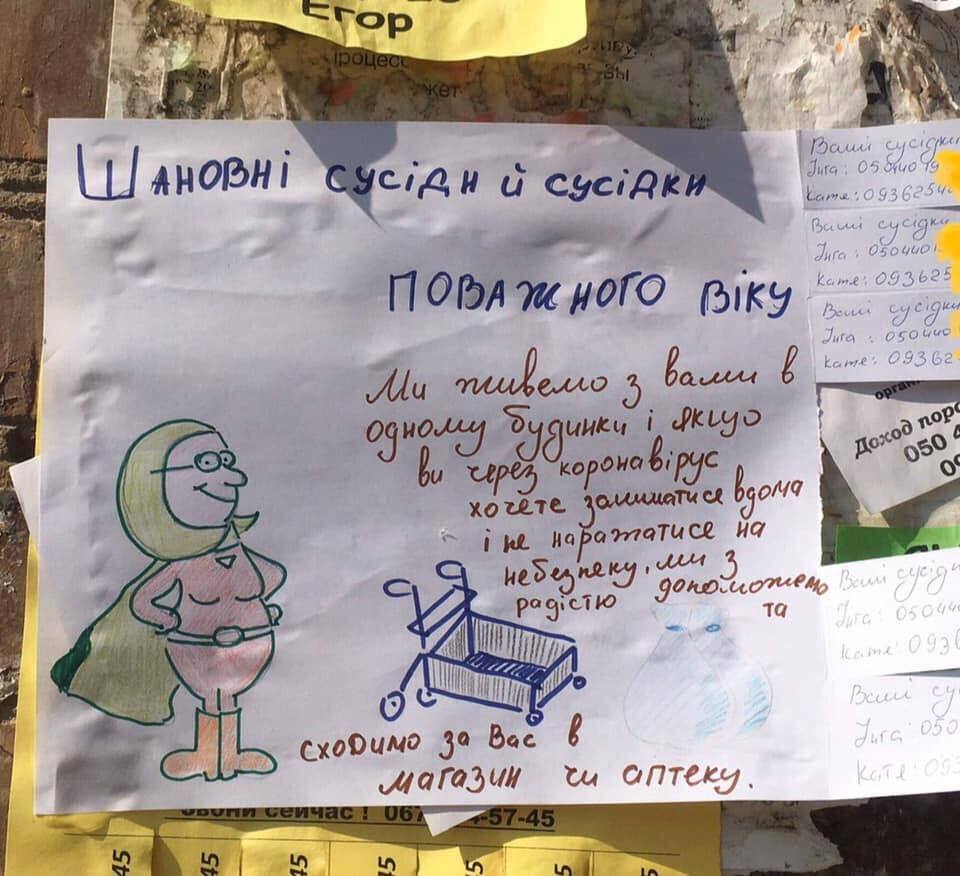 Егор
процес
жет
Шановні сусіди й сусідки
поважного віку
Ми живемо з вами в
одному будинки і якщо
ви через коронавірус
хочете залишатися вдома
і не наражатися на
небезпеку, ми з
радістю допоможемо
та
сходимо за Вас в
магазин чи аптеку.
Ваші сусідки
Інга: 05044019
Катя: 0936254
Ваші сусідки
Інга: 050440
Катя: 093625
Ваші сусідки
Інга: 050440
Катя: 09362
Доход
050 4
09
Ваші сусідки
Інга: 05044
Катя: 0936
Ваші
Інга: 050
Катя: 093
сейчас! 067 -57-45
45
45
45
45
45
45